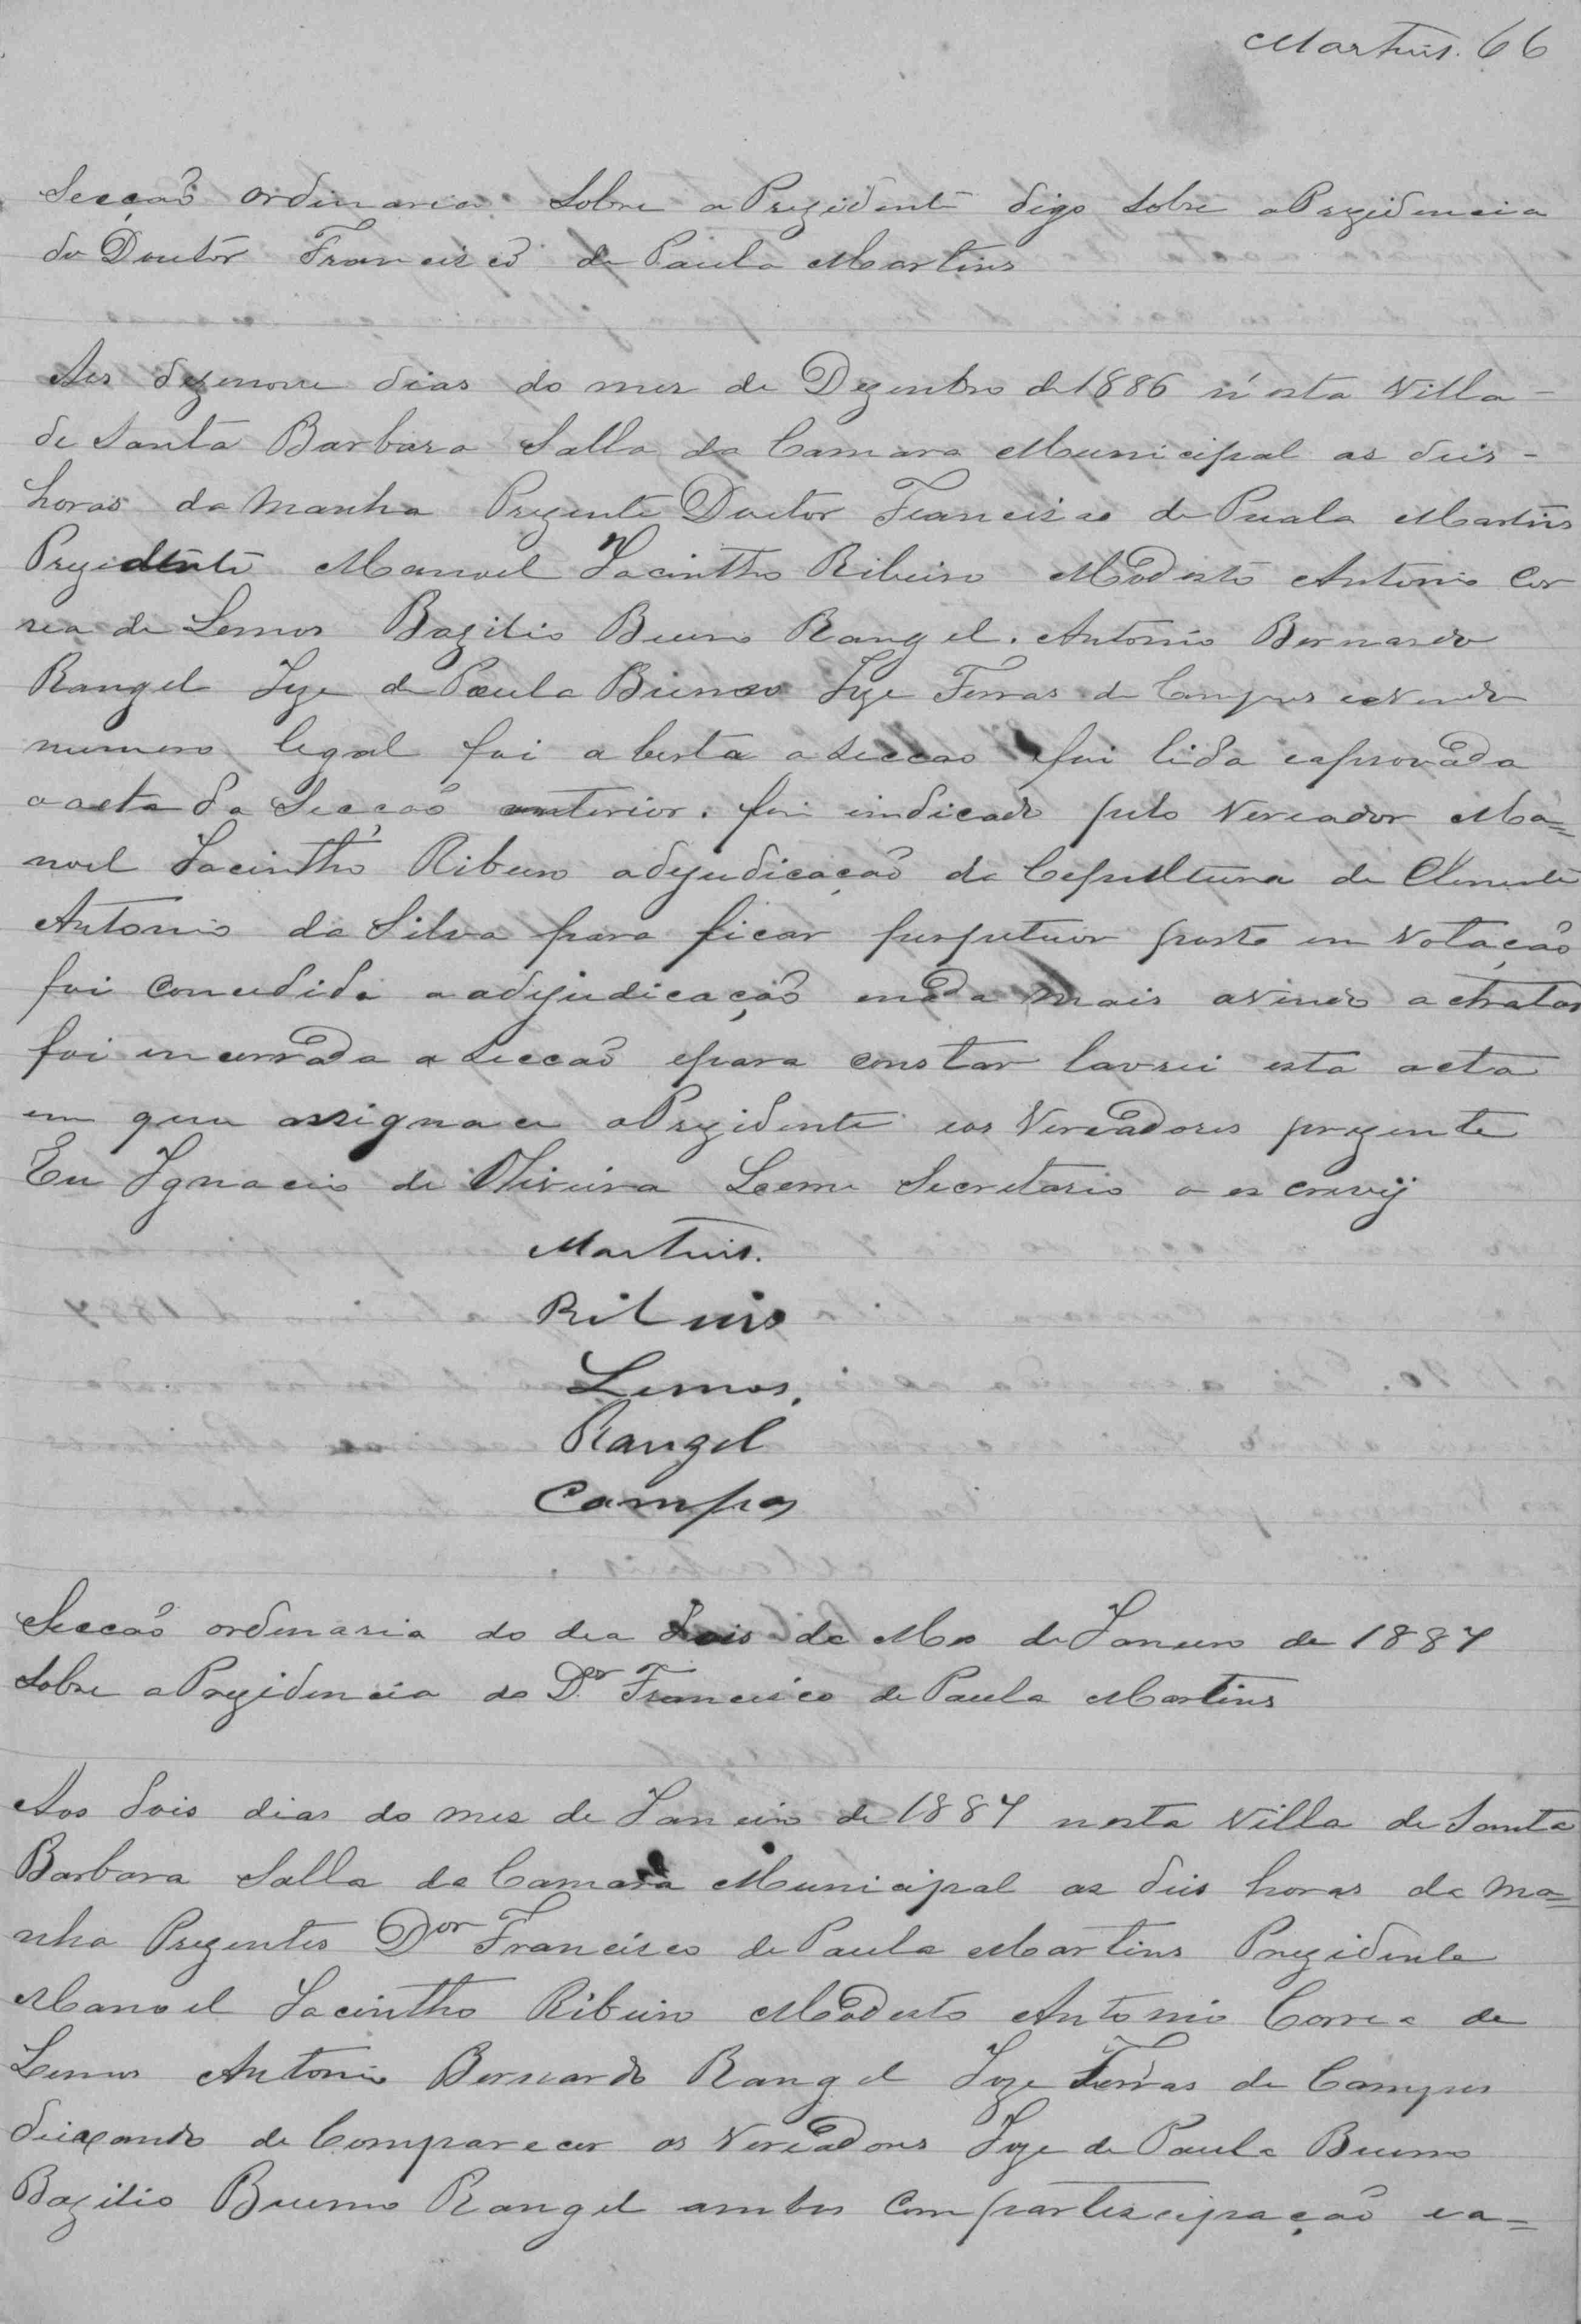 Martins. 66
Secção ordinaria Sobre a Prezidente digo Sobre a Prezidencia
do Doutor Francisco de Paula Martins
Aos dezenove dias do mes de Dezembro de 1886 n'esta Villa -
de Santa Barbara Salla da Camara Municipal as deis -
horas da Manha Prezente Doutor Francisco de Puala Martins
Prezidente Manoel Jacintho Ribeiro Modesto Antonio Cor
rea de Lemos Bazilio Bueno Rangel. Antonio Bernardo
Rangel Joze de Paula Bueno Joze Ferras de Campos
numero legal foi aberta a seccao foi lida eaprovada
a acta da Secção anterior. foi indicado pelo Vereador Ma=
noel Jacintho Ribeiro adejudicação da Cepultura de Clemente
Antonio da Silva para ficar posto em Votação
foi Concedida a adejudicação enada mais avendo a tratar
foi encerrada a secção epara constar lavrei esta acta
em que assigna o Prezidente eos Vereadores prezente
Eu Ignacio de Oliveira Leeme Secretario o escrevij
Martins.
Ribeiro
Lemos.
Rangel
Campos
Seccaó ordenaria do dea dois de Mes de Janeiro de 1887
Sobre a Prezidencia do Dr Francisco de Paula Martins
Aos dois dias do mes de Janeiro de 1887 nesta Villa de Santa
Barbara Salla da Camara Municipal as deis horas da ma=
nha Prezentes Dor Francisco de Paula Martins Prezidente
Manoel Jacintho Ribeiro Modesto Antonio Correa de
Lemos Antonio Bernardo Rangel Joze Ferras de Campos
deixando de Comparecer os Vereadores Joze de Paula Bueno
Bazilio Bueno Rangel ambos Com partescipação ea=